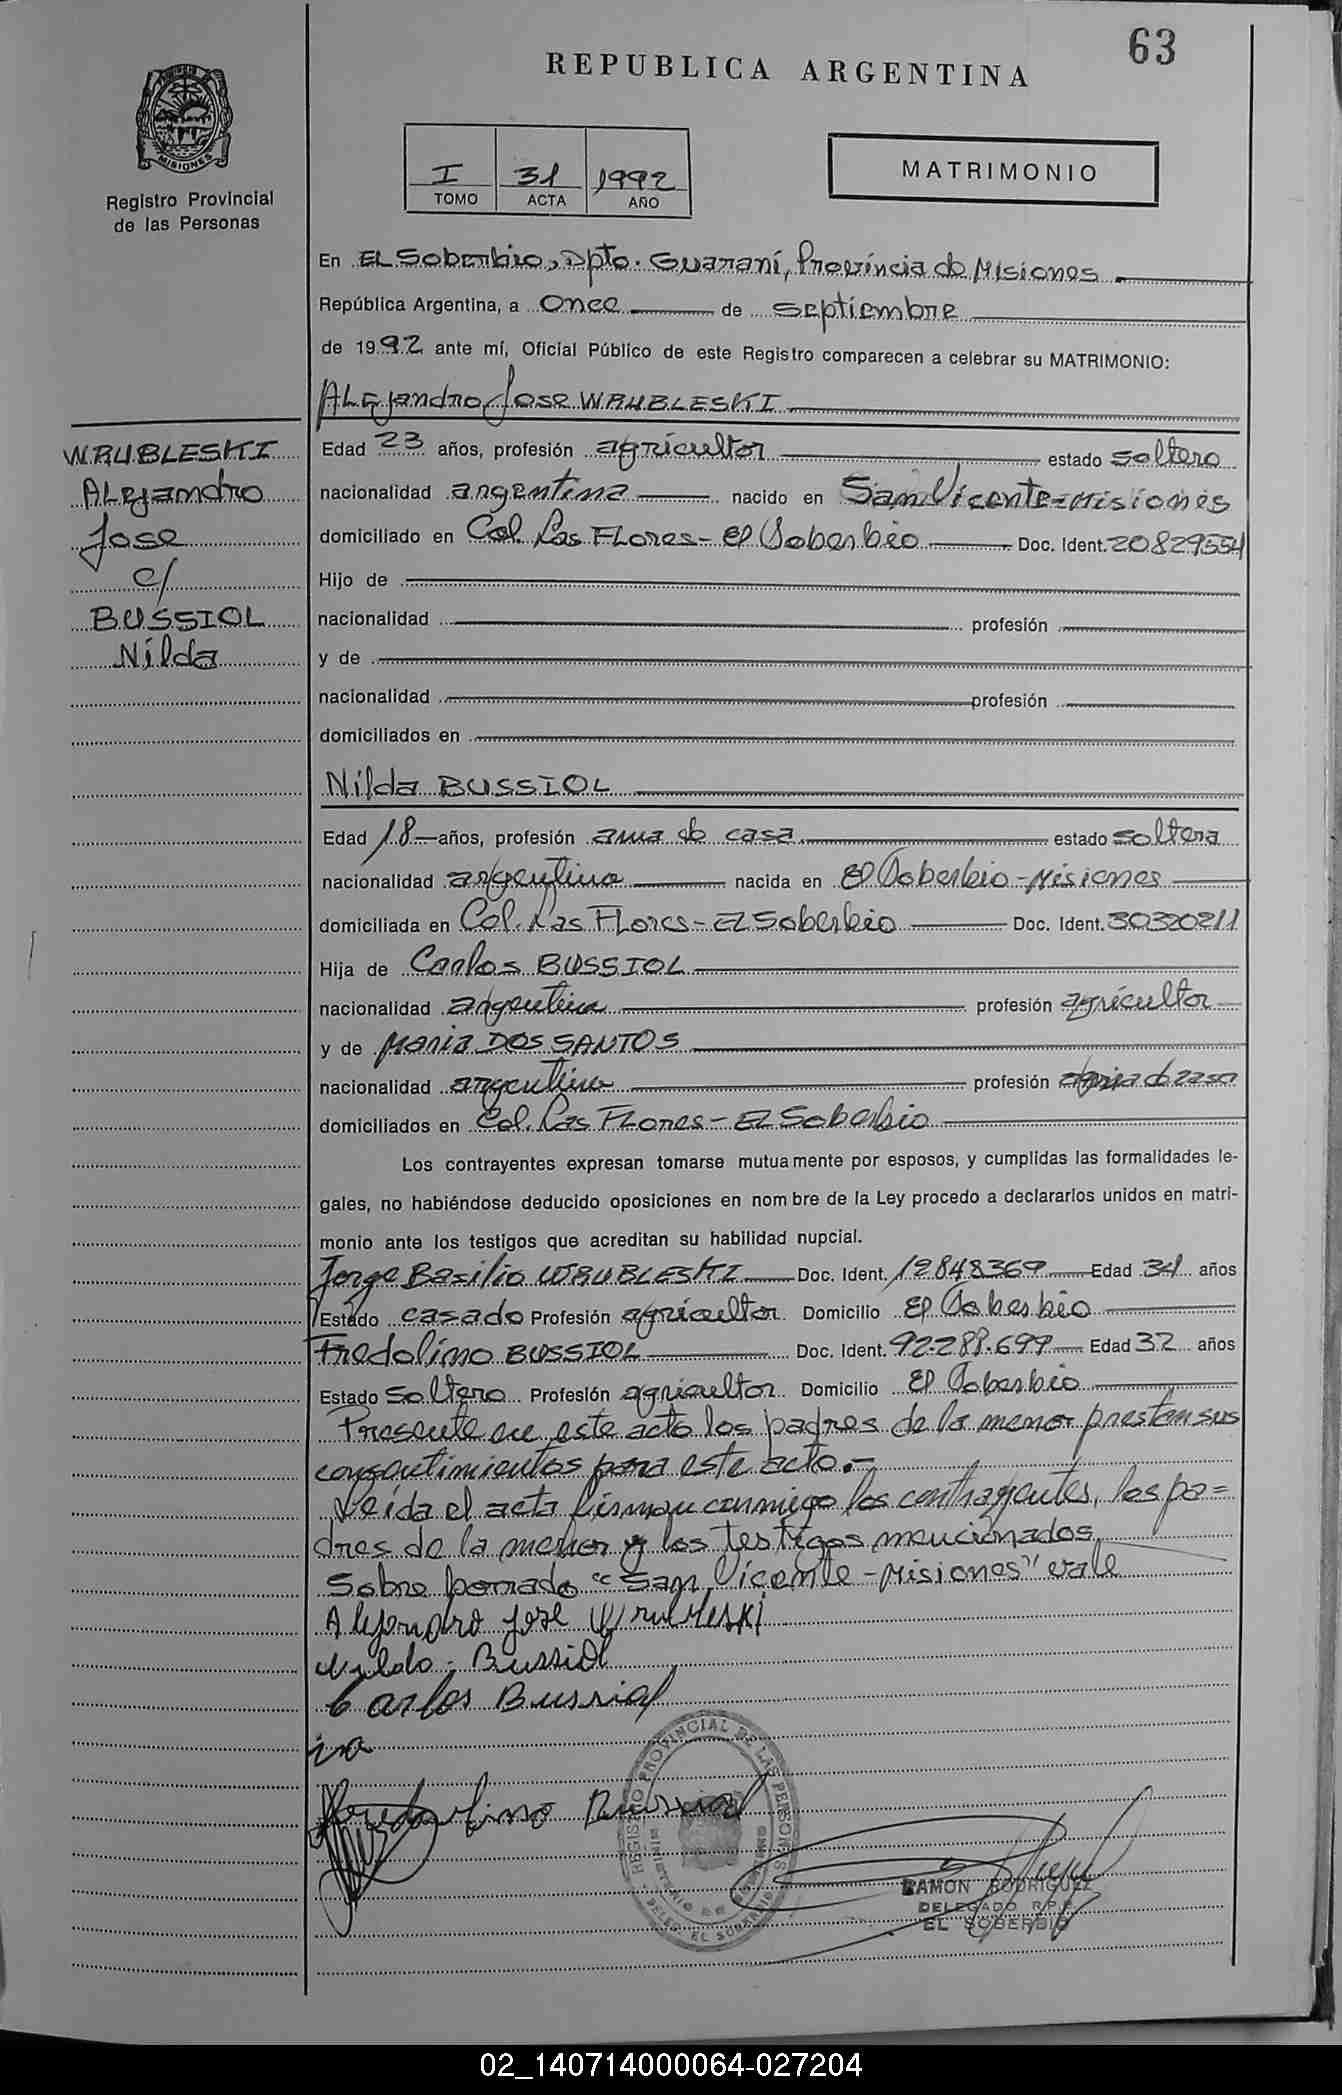 63
REPUBLICA ARGENTINA
MISIONES
Registro Provincial
de las Personas
I 31 1992
TOMO ACTA AÑO
MATRIMONIO
En EL Soberbio, Dpto. Guaraní, Provincia de Misiones
República Argentina, a Once de Septiembre
de 1992 ante mí, Oficial Público de este Registro comparecen a celebrar su MATRIMONIO:
ALejandro Jose WRUBLESKI
WRUBLESKI
ALejandro
Jose
c/
BUSSIOL
Nilda
Edad 23 años, profesión agricultor estado soltero
nacionalidad argentina nacido en San Vicente-Misiones
domiciliado en Col. Las FLores - El Soberbio Doc. Ident. 20829554
Hijo de
nacionalidad profesión
y de
nacionalidad profesión
domiciliados en
Nilda BUSSIOL
Edad 18 años, profesión ama de casa estado soltera
nacionalidad argentina nacida en El Soberbio - Misiones
domiciliada en Col. Las FLores - EL Soberbio Doc. Ident. 30320211
Hija de Carlos BUSSIOL
nacionalidad argentina profesión agricultor
y de Maria DOS SANTOS
nacionalidad argentina profesión ama de casa
domiciliados en Col. Las FLores - EL Soberbio
Los contrayentes expresan tomarse mutuamente por esposos, y cumplidas las formalidades le-
gales, no habiéndose deducido oposiciones en nombre de la Ley procedo a declararlos unidos en matri-
monio ante los testigos que acreditan su habilidad nupcial.
Jorge Basilio WRUBLESKI Doc. Ident. 12848369 Edad 34 años
Estado casado Profesión agricultor Domicilio El Soberbio
Fredolino BUSSIOL Doc. Ident. 92.288.699 Edad 32 años
Estado Soltero Profesión agricultor Domicilio El Soberbio
Presente en este acto los padres de la menor prestan sus
consentimientos para este acto.-
Leída el acta firman conmigo los contrayentes, los pa=
dres de la menor y los testigos mencionados
Sobre borrado "San Vicente-Misiones" vale
Alejandro Jose Wrubleski
Nilda Bussiol
Carlos Bussiol
Fredolino Bussiol
REGISTRO PROVINCIAL DE LAS PERSONAS
MINISTERIO DE GOBIERNO
DELEG. EL SOBERBIO
RAMON RODRIGUEZ
DELEGADO R.P.P.
EL SOBERBIO
02_140714000064-027204